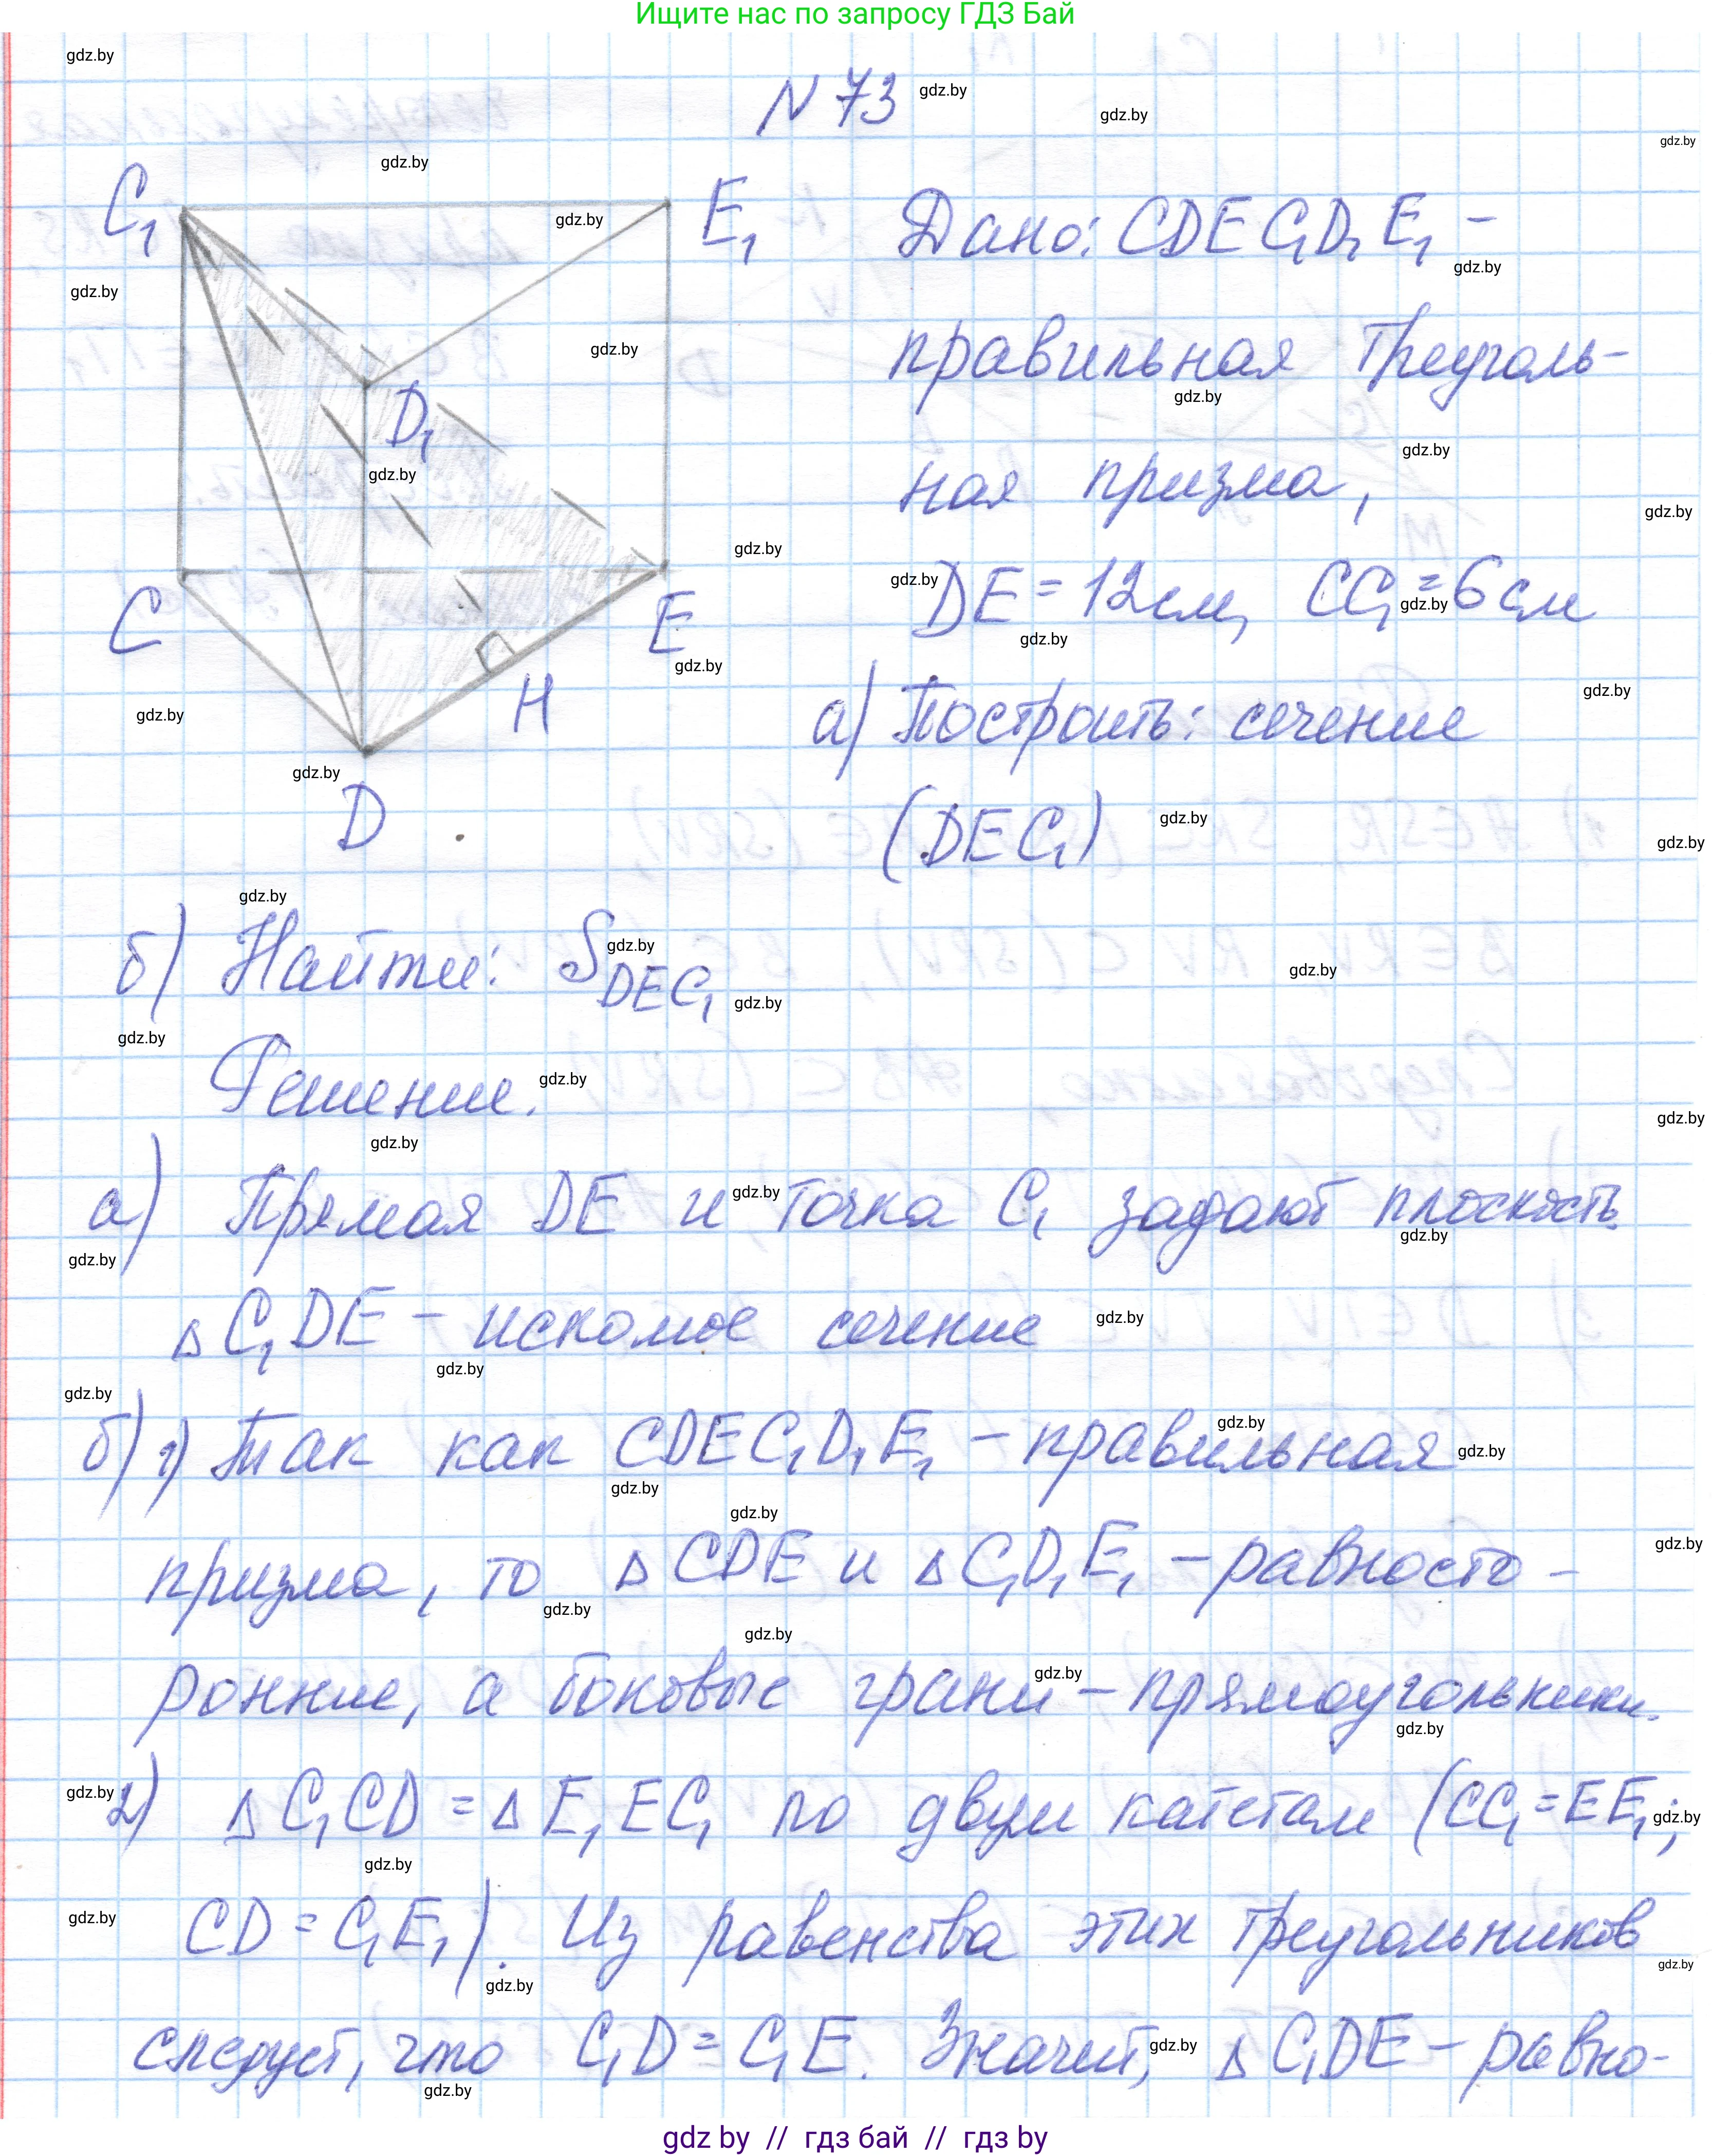 Ищите нас по запросу ГДЗ Бай
N 73
C₁
E₁
D₁
C
E
H
D
Дано: CDEC₁D₁E₁ –
правильная треуголь-
ная призма,
DE = 12 см, CC₁ = 6 см
а) Построить: сечение
(DEC₁)
б) Найти: S DEC₁
Решение.
а) Прямая DE и точка C₁ задают плоскость.
△ C₁DE – искомое сечение
б) 1) Так как CDEC₁D₁E₁ – правильная
призма, то △ CDE и △ C₁D₁E₁ – равносто-
ронние, а боковые грани – прямоугольники.
2) △ C₁CD = △ E₁EC₁ по двум катетам (CC₁ = EE₁;
CD = C₁E₁). Из равенства этих треугольников
следует, что C₁D = C₁E. Значит, △ C₁DE – равно-
gdz by // гдз бай // гдз by